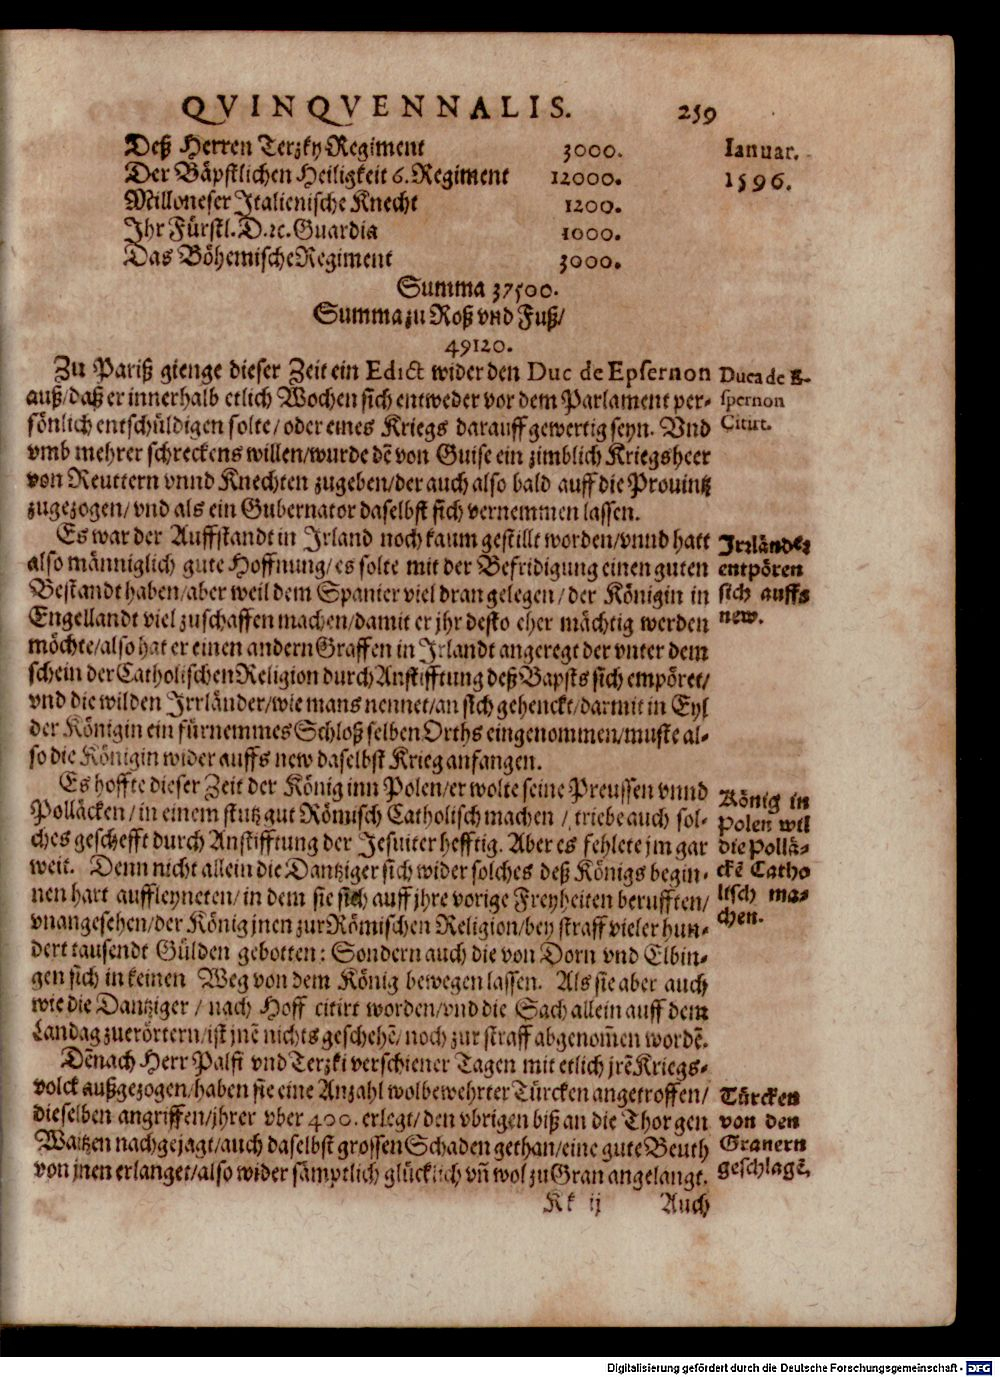 QVINQVENNALIS. 259
Deß Herren Terzky Regiment 3000.
Der Bäpstlichen Heiligkeit 6. Regiment 12000.
Milloneser Italienische Knecht 1200.
Ihr Fürstl. D. ꝛc. Guardia 1000.
Das Böhemische Regiment 3000.
Ianuar.
1596.
Summa 37500.
Summa zu Roß vnd Fuß/
49120.
Zu Pariß gienge dieser Zeit ein Edict wider den Duc de Epsernon
auß/daß er innerhalb etlich Wochen sich entweder vor dem Parlament per-
sönlich entschüldigen solte/ oder eines Kriegs darauff gewertig seyn. Vnd
vmb mehrer schreckens willen/wurde dē von Guise ein zimblich Kriegsheer
von Reuttern vnnd Knechten zugeben/der auch also bald auff die Prouintz
zugezogen/ vnd als ein Gubernator daselbst sich vernemmen lassen.
Duca de E-
spernon
Citirt.
Es war der Auffstandt in Irland noch kaum gestillt worden/vnnd hatt
also männiglich gute Hoffnung/es solte mit der Befridigung einen guten
Bestandt haben/aber weil dem Spanier viel dran gelegen/ der Königin in
Engellandt viel zuschaffen machen/damit er jhr desto eher mächtig werden
möchte/also hat er einen andern Graffen in Irlandt angeregt der vnter dem
schein der Catholischen Religion durch Anstifftung deß Bapsts sich empöret/
vnd die wilden Irrländer/wie mans nennet/an sich gehenckt/darmit in Eyl
der Königin ein fürnemmes Schloß selben Orths eingenommen/muste al-
so die Königin wider auffs new daselbst Krieg anfangen.
Irrländer
entpören
sich auffs
new.
Es hoffte dieser Zeit der König inn Polen/er wolte seine Preussen vnnd
Polläcken/ in einem stutz gut Römisch Catholisch machen/ triebe auch sol-
ches geschefft durch Anstifftung der Jesuiter hefftig. Aber es fehlete jm gar
weit. Denn nicht allein die Dantziger sich wider solches deß Königs begin-
nen hart auffleyneten/ in dem sie sich auff jhre vorige Freyheiten berufften/
vnangesehen/der König jnen zur Römischen Religion/bey straff vieler hun-
dert tausendt Gülden gebotten: Sondern auch die von Dorn vnd Elbin-
gen sich in keinen Weg von dem König bewegen lassen. Als sie aber auch
wie die Dantziger/ nach Hoff citirt worden/vnd die Sach allein auff dem
Landag zuerörtern/ist jnē nichts geschehē/ noch zur straff abgenom̄en wordē.
König in
Polen wil
die Pollä-
ckē Catho
lisch ma-
chen.
Dēnach Herr Palfi vnd Terzki verschiener Tagen mit etlich jrē Kriegs-
volck außgezogen/haben sie eine Anzahl wolbewehrter Türcken angetroffen/
dieselben angriffen/jhrer vber 400. erlegt/den vbrigen biß an die Thor gen
Waitzen nachgejagt/auch daselbst grossen Schaden gethan/eine gute Beuth
von jnen erlanget/also wider sämptlich glücklich vn̄ wol zu Gran angelangt.
Türcken
von den
Granern
geschlagē.
Kk ij Auch
Digitalisierung gefördert durch die Deutsche Forschungsgemeinschaft - DFG